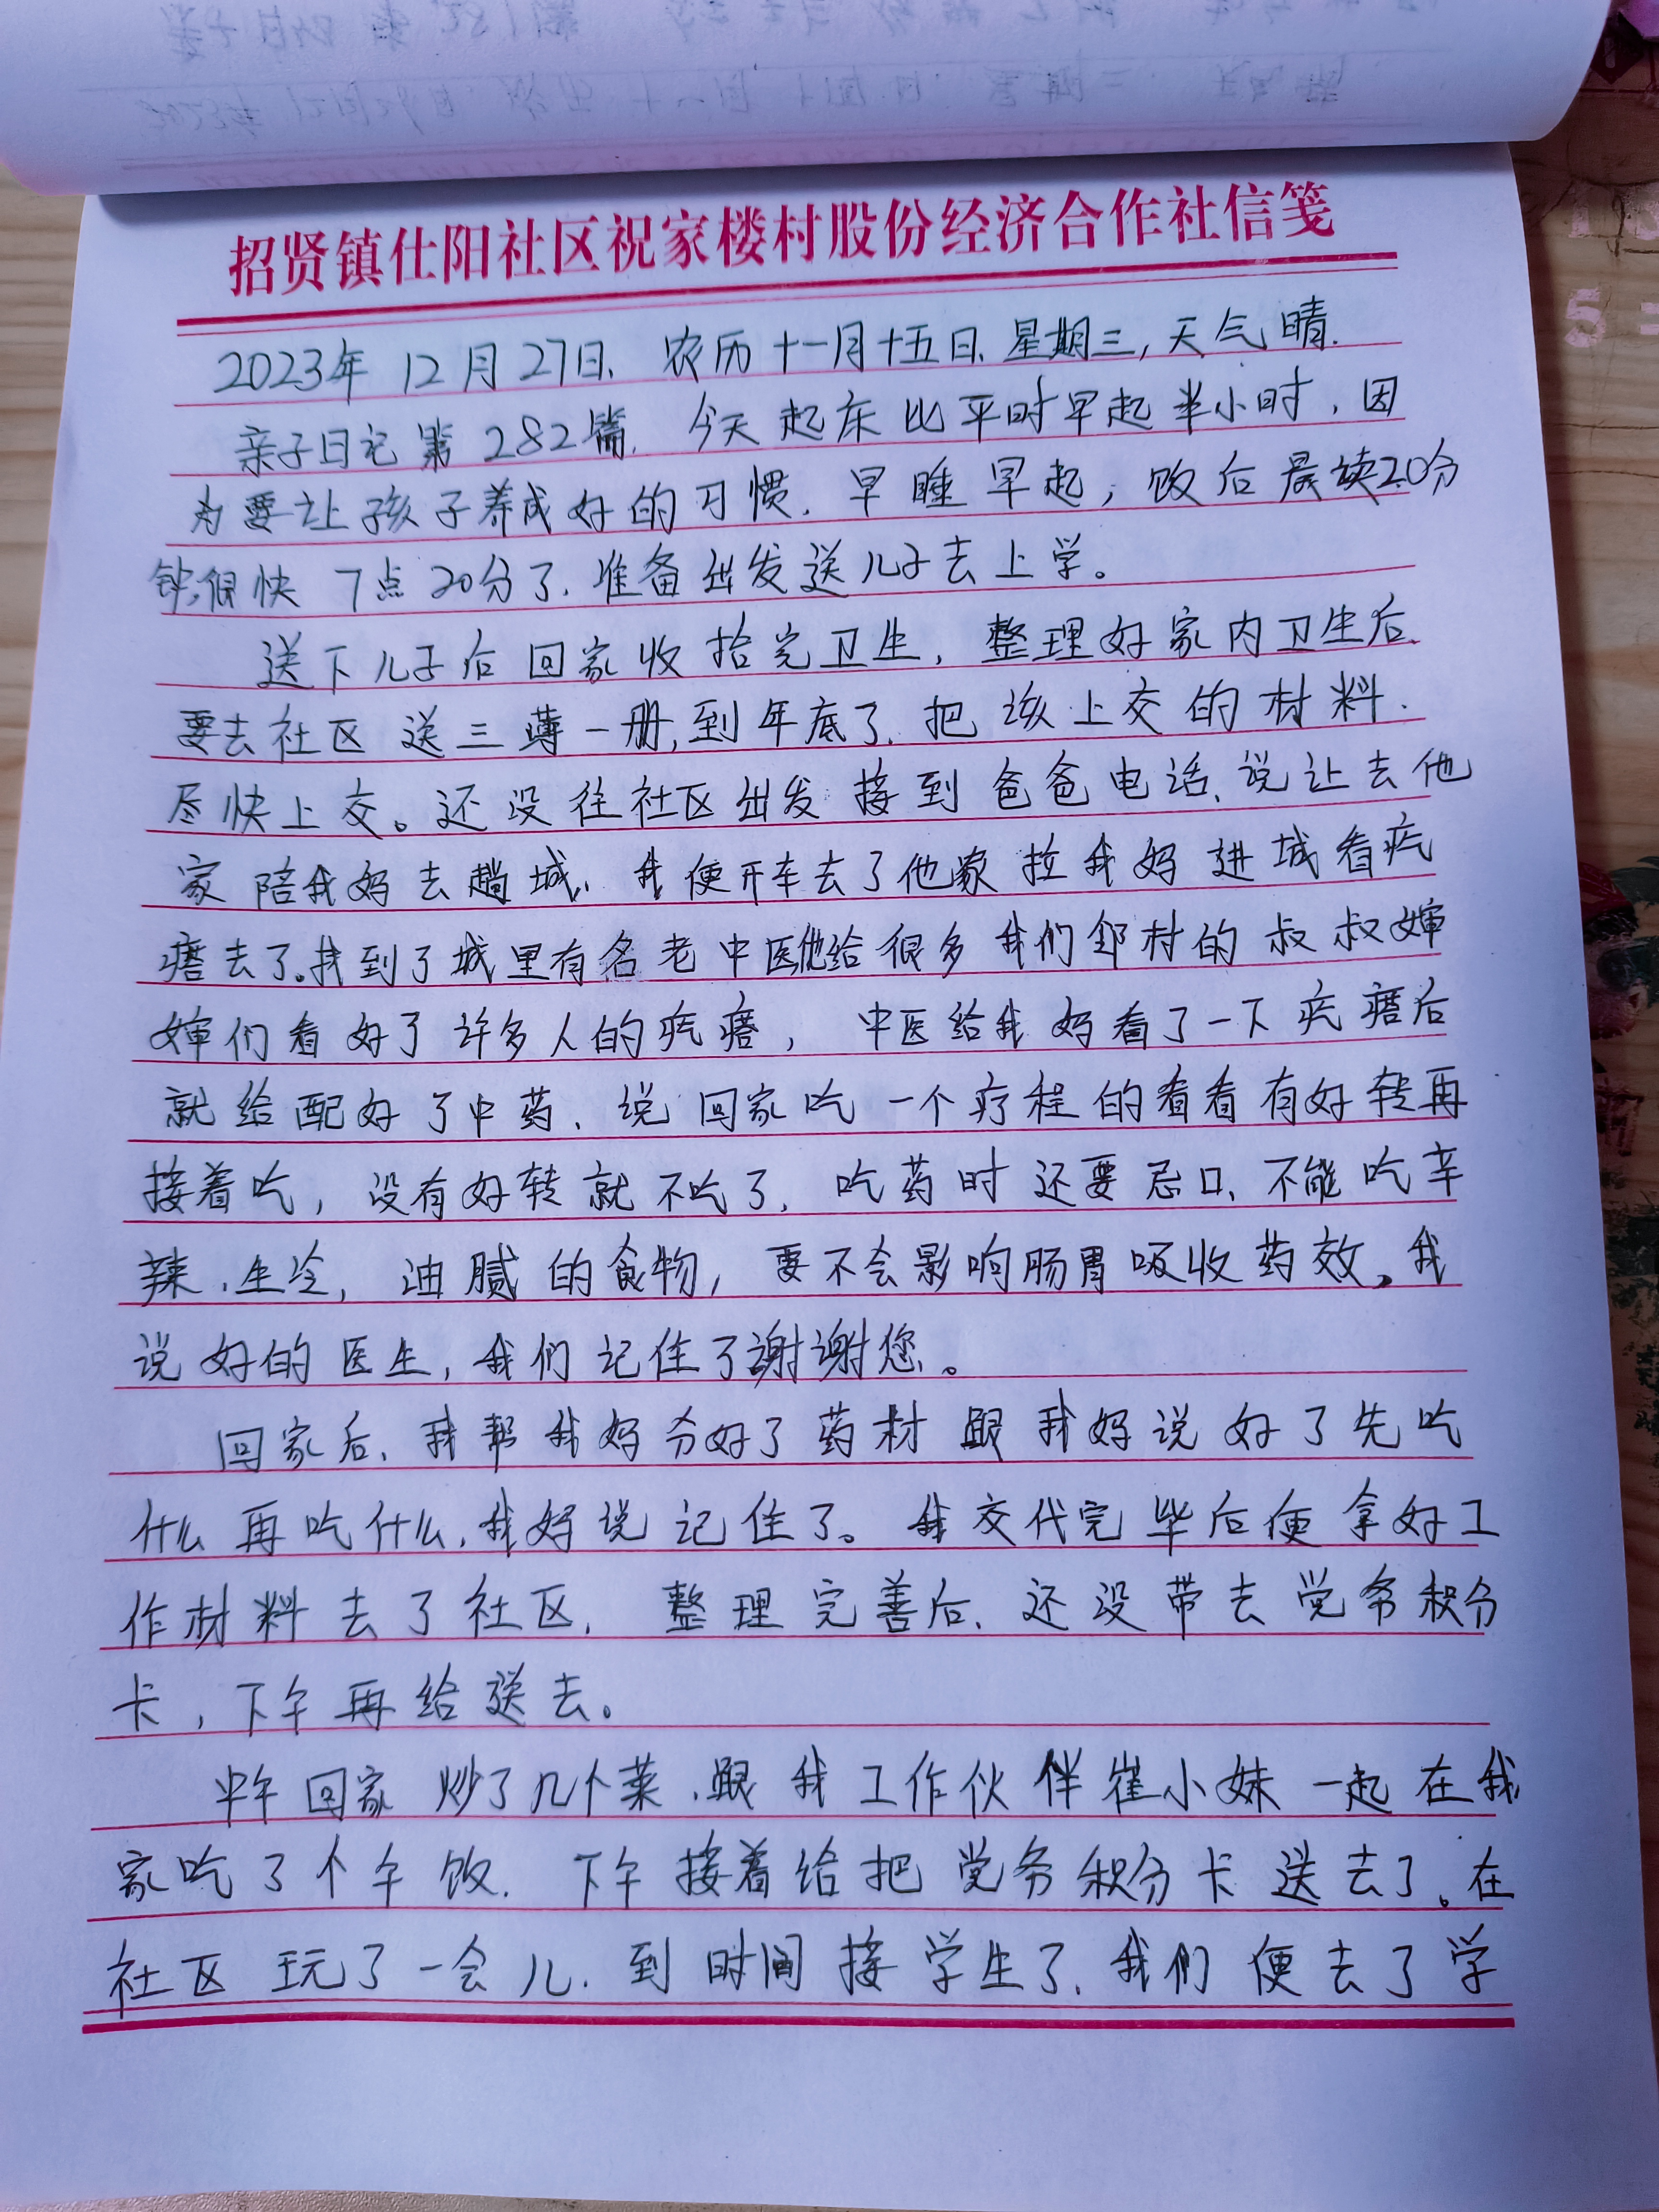 招贤镇仕阳社区祝家楼村股份经济合作社信笺
2023年12月27日、农历十一月十五日、星期三,天气晴.
亲子日记第282篇. 今天起床比平时早起半小时、因
为要让孩子养成好的习惯. 早睡早起,饭后晨读20分
钟,很快7点20分了.准备出发送儿子去上学。
送下儿子后回家收拾完卫生,整理好家内卫生后、
要去社区送三薄一册,到年底了.把该上交的材料.
尽快上交。还没往社区出发接到爸爸电话、说让去他
家陪我妈去趟城、我便开车去了他家拉我妈进城看疙
瘩去了。找到了城里有名老中医,他给很多我们邻村的叔叔婶
婶们看好了许多人的疙瘩, 中医给我妈看了一下疙瘩后
就给配好了中药、说回家吃一个疗程的看看有好转再
接着吃,没有好转就不吃了,吃药时还要忌口、不能吃辛
辣、生冷,油腻的食物,要不会影响肠胃吸收药效。我
说好的医生,我们记住了谢谢您。
回家后、我帮我妈分好了药材跟我妈说好了先吃
什么再吃什么,我妈说记住了。我交代完毕后便拿好工
作材料去了社区, 整理完善后、还没带去党务积分
卡,下午再给送去。
中午回家炒了几个菜、跟我工作伙伴崔小妹一起在我
家吃了个午饭. 下午接着给把党务积分卡送去了。在
社区玩了一会儿.到时间接学生了、我们便去了学